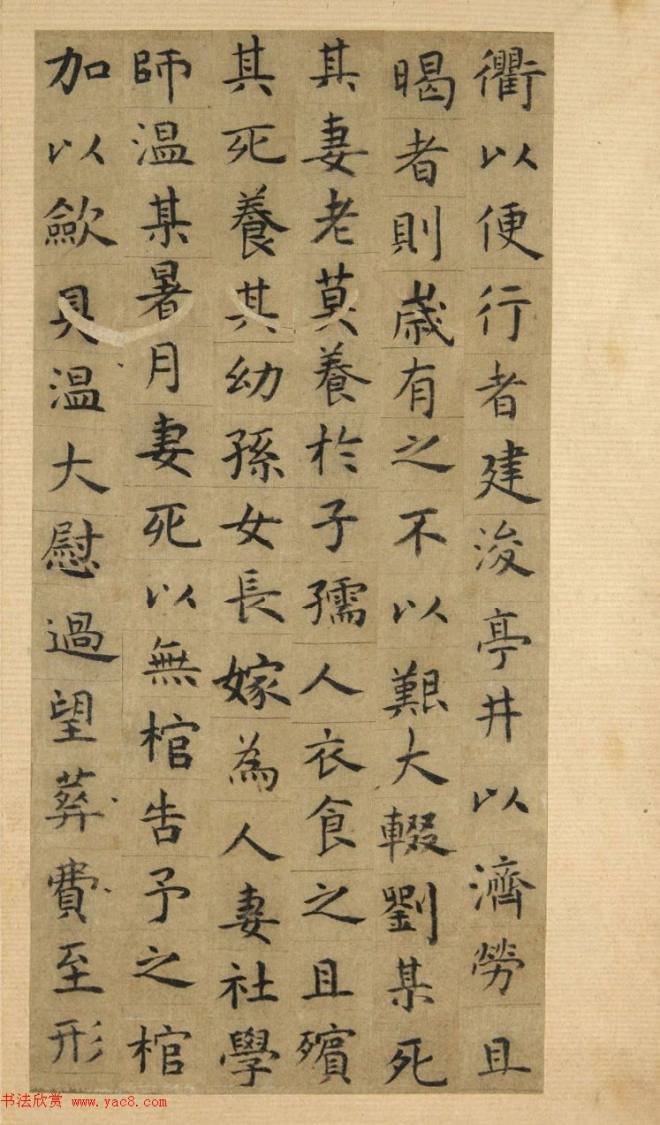 衢以便行者建浚亭井以濟勞且
暍者則歲有之不以艱大輟劉某死
其妻老莫養於子孺人衣食之且殯
其死養其幼孫女長嫁為人妻社學
師温某暑月妻死以無棺告予之棺
加以歛具温大慰過望葬費至形
书法欣赏 www.yac8.com